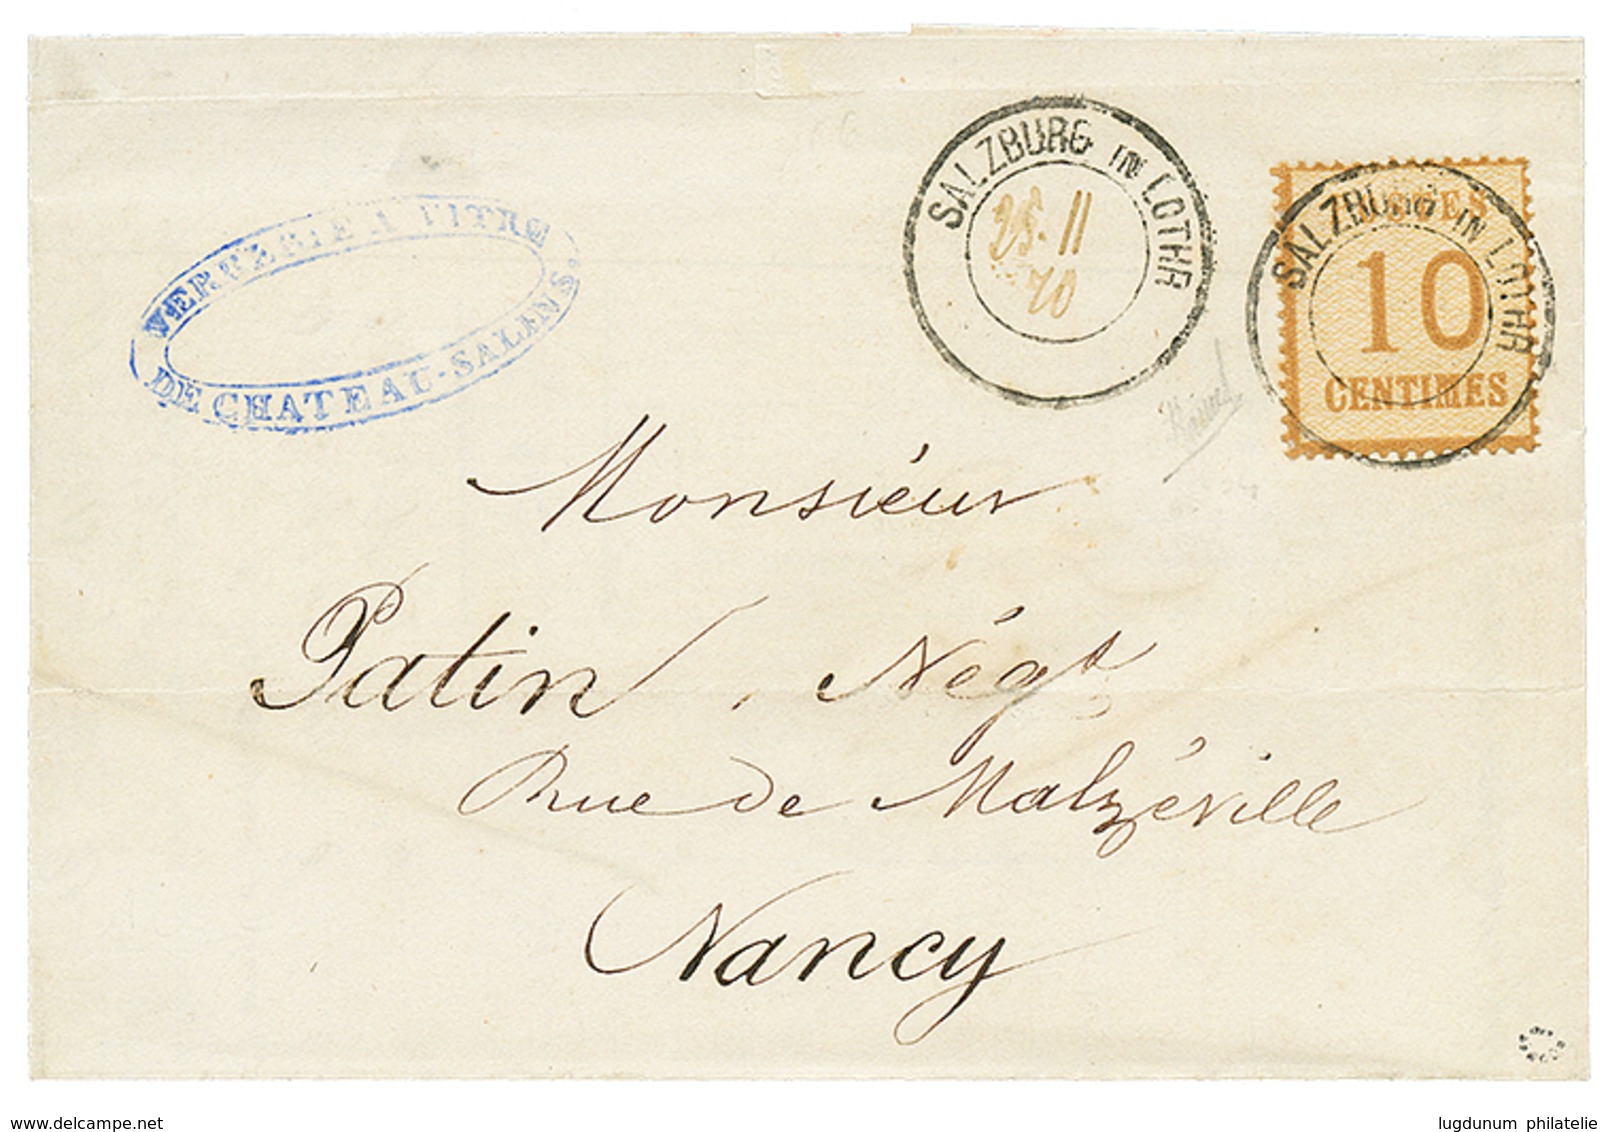 VERRERIE A VITRE
DE CHATEAU-SALINS.
SALZBURG IN LOTHR
25.11
70
SALZBURG IN LOTHR
POSTES
10
CENTIMES
Monsieur
Patin, Négt
Rue de Malzéville
Nancy
lugdunum philatelie